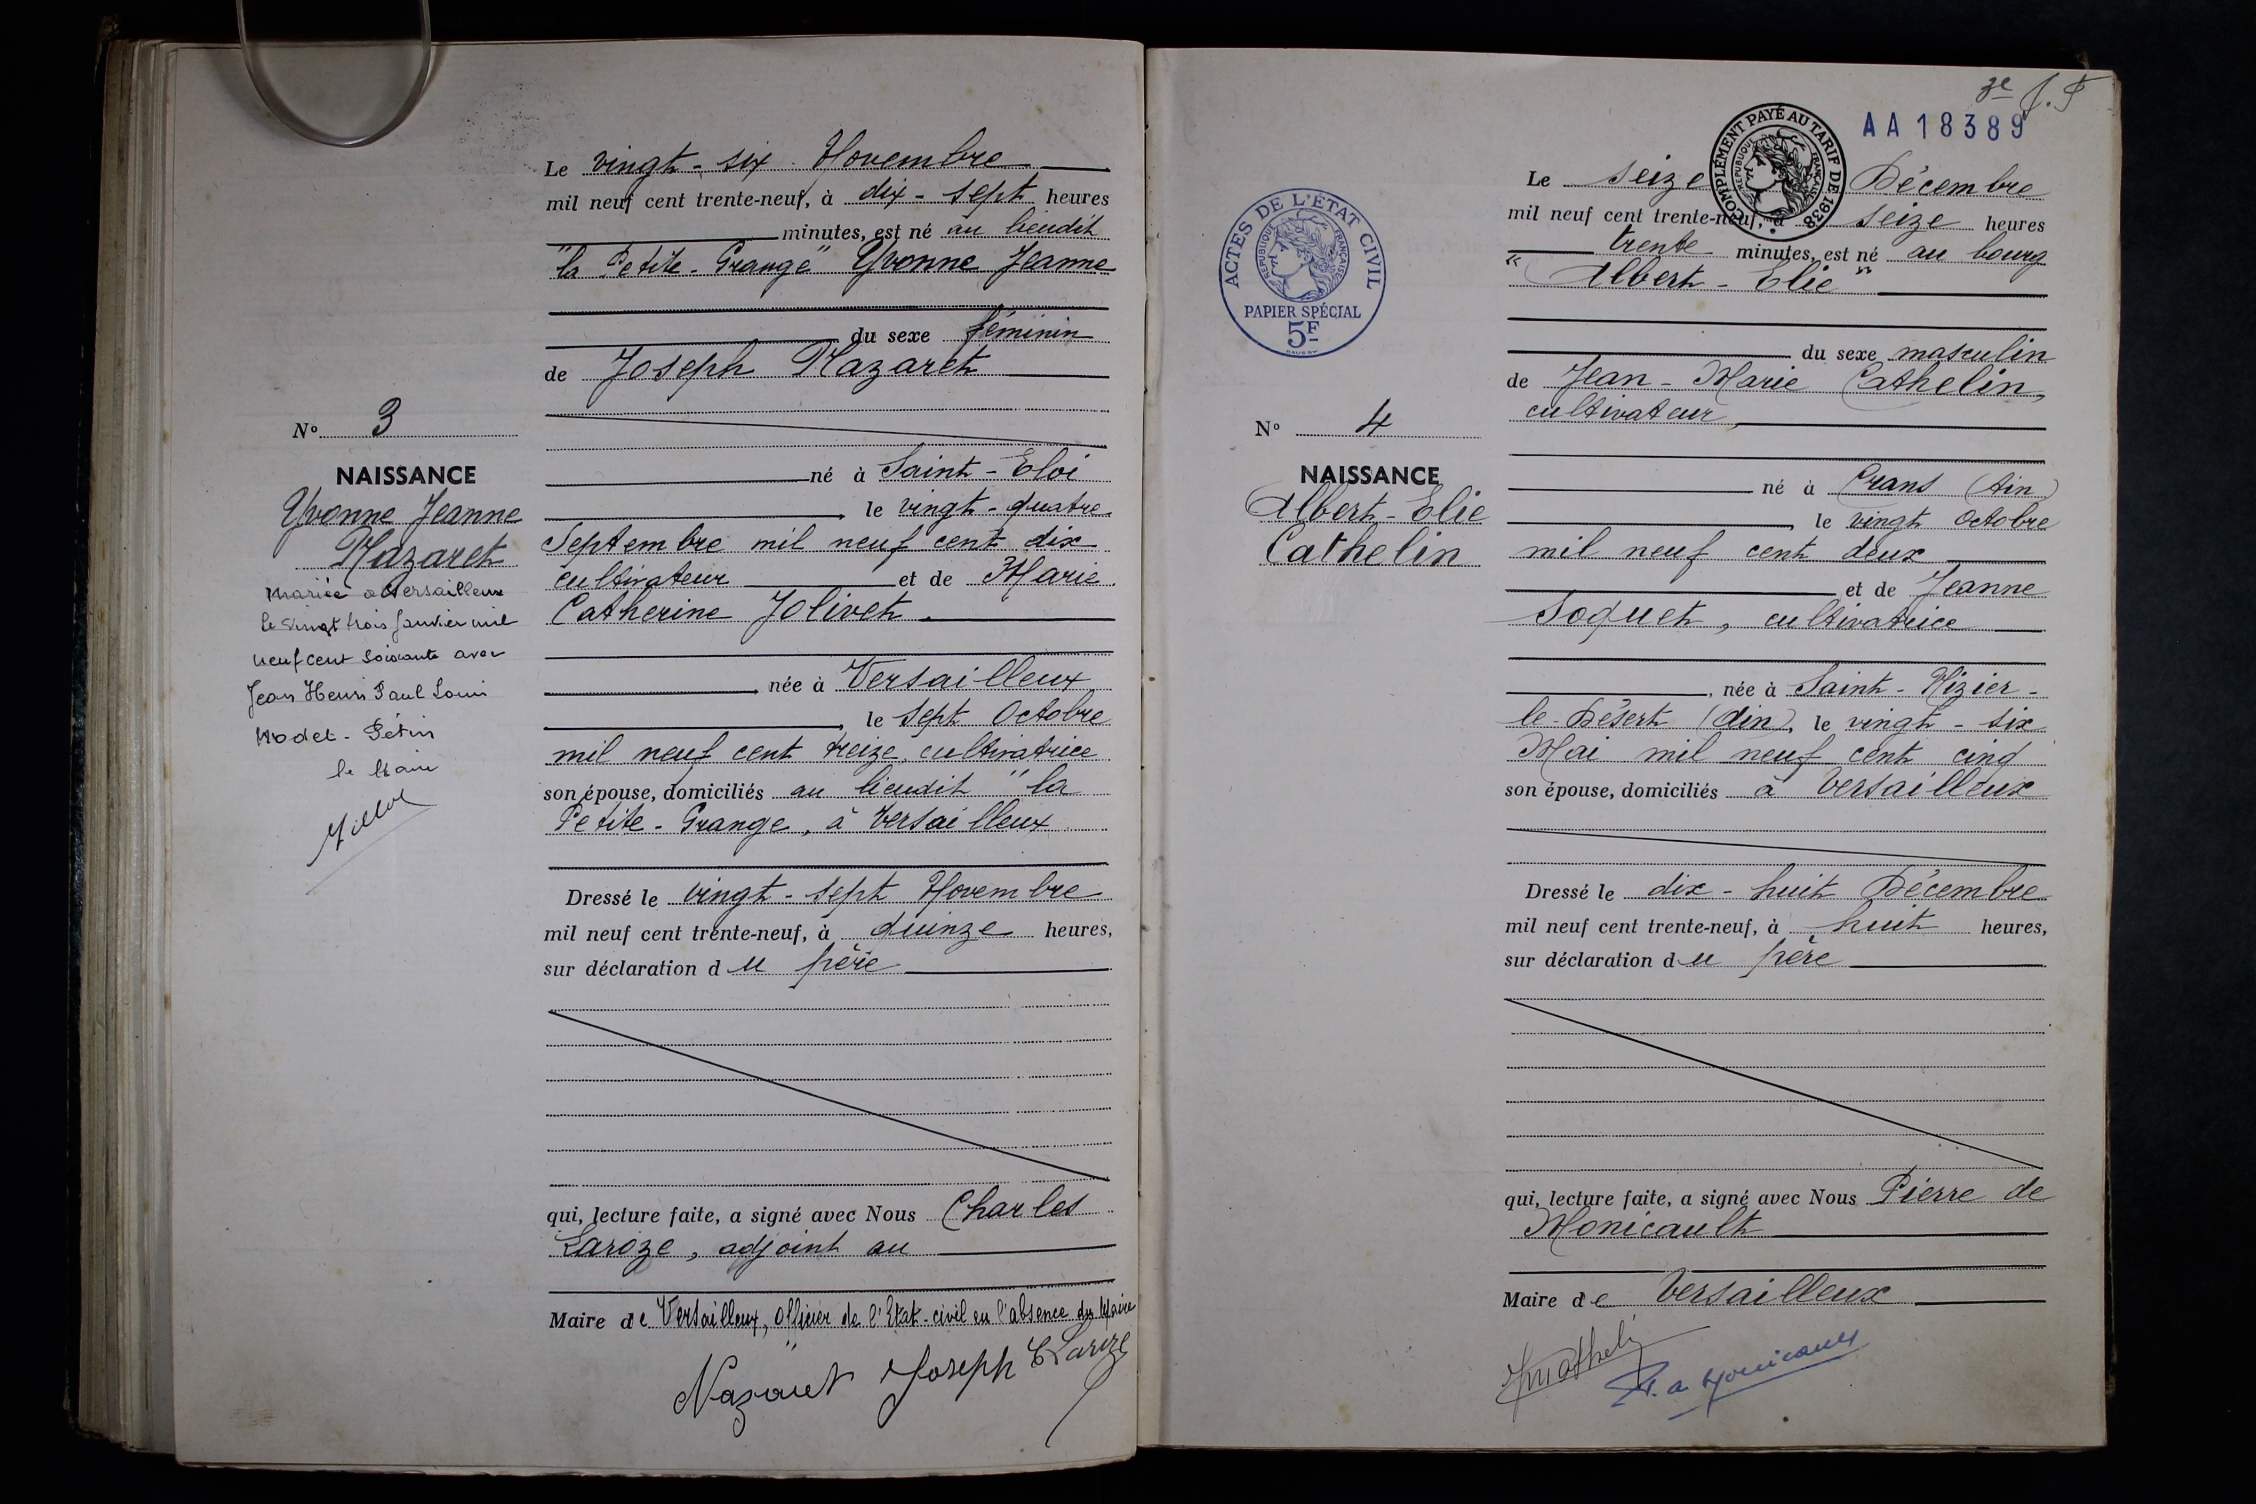 Le vingt-six Novembre
mil neuf cent trente-neuf, à dix-sept heures
minutes, est né au lieudit
"la Petite-Grange" Yvonne Jeanne
du sexe féminin
de Joseph Nazaret
né à Saint-Eloi
le vingt-quatre
Septembre mil neuf cent dix
cultivateur et de Marie
Catherine Jolivet.
née à Versailleux
le sept Octobre
mil neuf cent treize, cultivatrice
son épouse, domiciliés au lieudit "la
Petite-Grange, à Versailleux
Dressé le vingt-sept Novembre
mil neuf cent trente-neuf, à quinze heures,
sur déclaration du père
qui, lecture faite, a signé avec Nous Charles
Laroze, adjoint au
Maire de Versailleux, officier de l'Etat-civil en l'absence du Maire
Nazaret Joseph C Laroze
No 3
NAISSANCE
Yvonne Jeanne
Nazaret
Mariée à Versailleux
le vingt trois janvier mil
neuf cent soixante avec
Jean Henri Paul Louis
Nodet-Pétin
le Maire
3e
AA18389
COMPLÉMENT PAYÉ AU TARIF DE 1938
RÉPUBLIQUE FRANÇAISE
ACTES DE L'ÉTAT CIVIL
RÉPUBLIQUE FRANÇAISE
PAPIER SPÉCIAL
5F
No 4
NAISSANCE
Albert-Elie
Cathelin
Le seize Décembre
mil neuf cent trente-neuf, à seize heures
trente minutes, est né au bourg
"Albert-Elie"
du sexe masculin
de Jean-Marie Cathelin,
cultivateur
né à Crans (Ain)
le vingt Octobre
mil neuf cent deux
et de Jeanne
Soquet, cultivatrice
née à Saint-Nizier-
le-Désert (Ain), le vingt-six
Mai mil neuf cent cinq
son épouse, domiciliés à Versailleux
Dressé le dix-huit Décembre
mil neuf cent trente-neuf, à huit heures,
sur déclaration du père
qui, lecture faite, a signé avec Nous Pierre de
Monicault
Maire de Versailleux